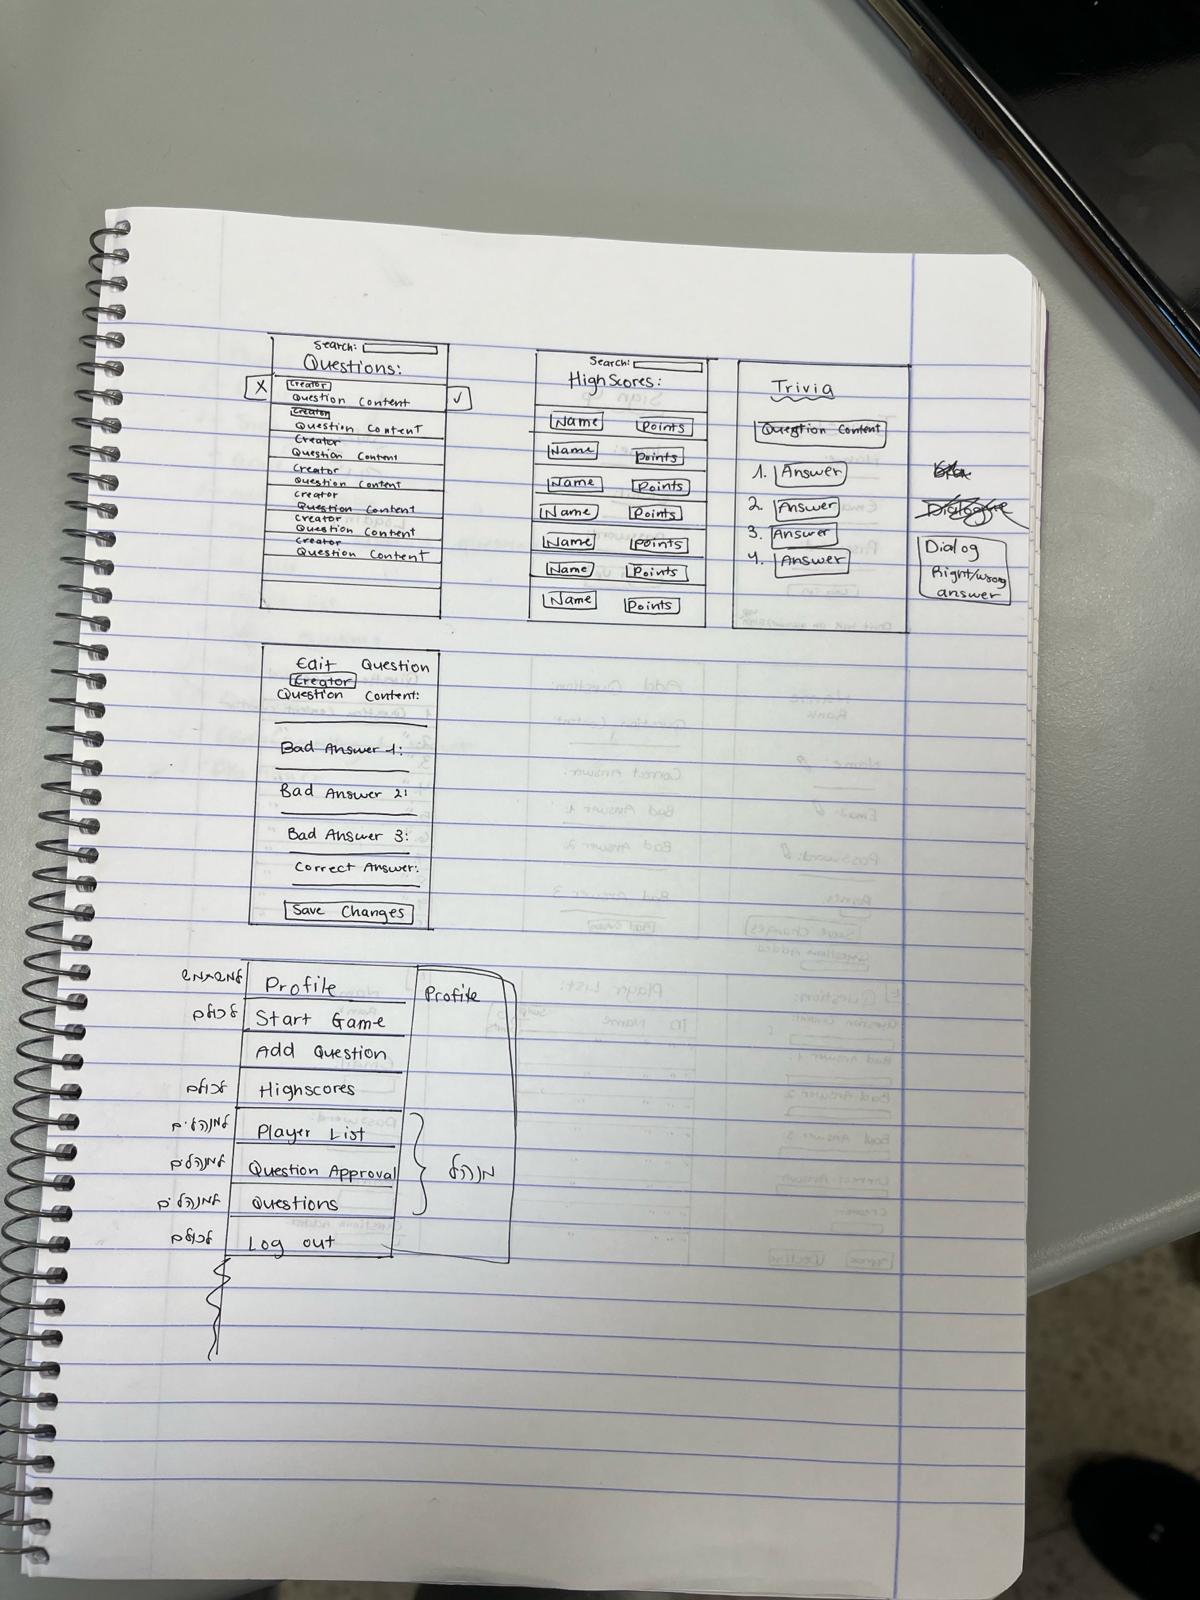 Search:
Questions:
X
Creator
Question Content
✓
Creator
Question Content
Creator
Question Content
Creator
Question Content
Creator
Question Content
Creator
Question Content
Creator
Question Content
Search:
HighScores:
Name Points
Name Points
Name Points
Name Points
Name Points
Name Points
Name Points
Trivia
Question Content
1. Answer
2. Answer
3. Answer
4. Answer
Dialog
Right/wrong
answer
Edit Question
Creator
Question Content:
Bad Answer 1:
Bad Answer 2:
Bad Answer 3:
Correct Answer:
Save Changes
Profile
Start Game
לכולם
Add Question
Highscores
לכולם
Player List
למנהלים
Question Approval
למנהלים
Questions
למנהלים
Log out
לכולם
Profile
מנהל